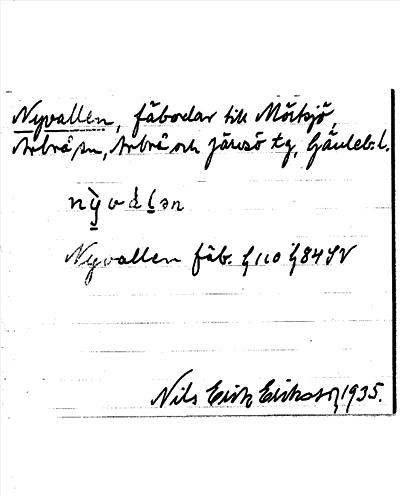 Nyvallen, fäbodar till Mörtsjö,
Arbrå sn, Arbrå och Järvsö tg, Gävleb. l.
Nyvallen fäb. 84 SV
Nils Erik Eriksson 1935.